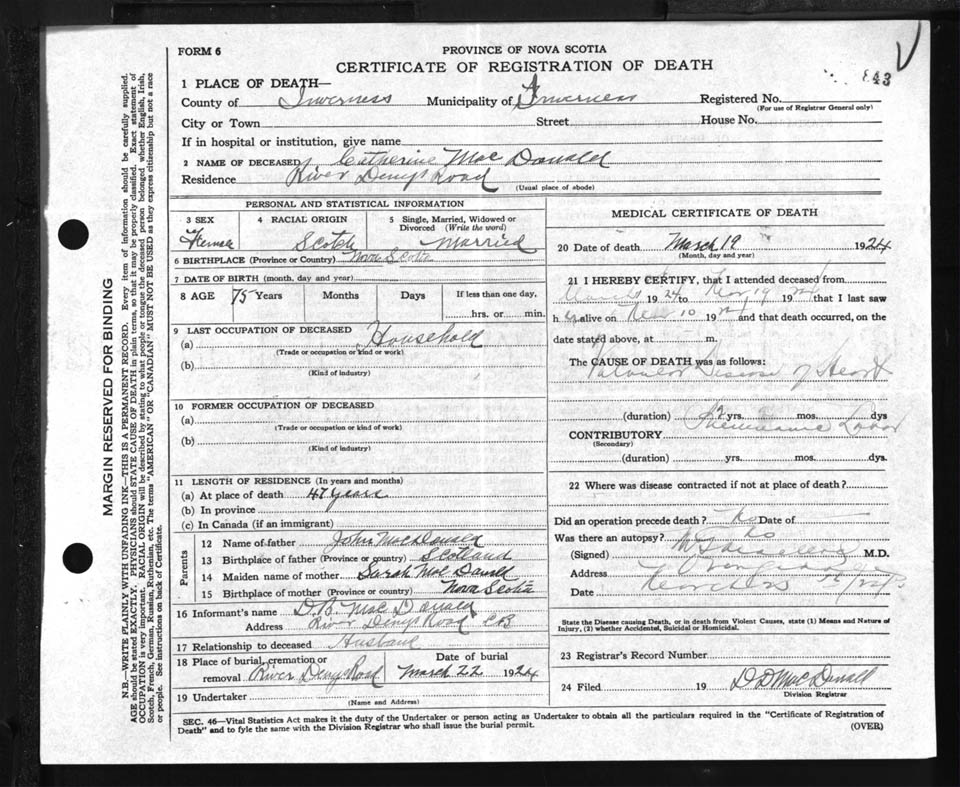 FORM 6
PROVINCE OF NOVA SCOTIA
CERTIFICATE OF REGISTRATION OF DEATH
843
1 PLACE OF DEATH—
County of Inverness Municipality of Inverness Registered No.
(For use of Registrar General only)
City or Town Street House No.
If in hospital or institution, give name
2 NAME OF DECEASED Catherine Mac Donald
Residence River Denys Road
(Usual place of abode)
PERSONAL AND STATISTICAL INFORMATION
3 SEX 4 RACIAL ORIGIN 5 Single, Married, Widowed or Divorced (Write the word)
Scotch Married
6 BIRTHPLACE (Province or Country) Nova Scotia
7 DATE OF BIRTH (month, day and year)
8 AGE 75 Years Months Days If less than one day, hrs. or min.
9 LAST OCCUPATION OF DECEASED
(a) Household
(Trade or occupation or kind or work)
(b)
(Kind of industry)
10 FORMER OCCUPATION OF DECEASED
(a)
(Trade or occupation or kind of work)
(b)
(Kind of industry)
11 LENGTH OF RESIDENCE (In years and months)
(a) At place of death 47 years
(b) In province
(c) In Canada (if an immigrant)
Parents
12 Name of father John MacDonald
13 Birthplace of father (Province or country) Scotland
14 Maiden name of mother Sarah Mac Donald
15 Birthplace of mother (Province or country) Nova Scotia
16 Informant's name D.B. Mac Donald
Address River Denys Road CB
17 Relationship to deceased Husband
18 Place of burial, cremation or removal River Denys Road Date of burial March 22 1924
19 Undertaker
(Name and Address)
MEDICAL CERTIFICATE OF DEATH
20 Date of death March 19 1924
(Month, day and year)
21 I HEREBY CERTIFY, that I attended deceased from
March 1924 to 19 19 that I last saw
h er alive on 10 19 and that death occurred, on the
date stated above, at m.
The CAUSE OF DEATH was as follows:
Valvular Disease of Heart
(duration) yrs. mos. dys
CONTRIBUTORY
(Secondary)
(duration) yrs. mos. dys.
22 Where was disease contracted if not at place of death?
Did an operation precede death? No Date of
Was there an autopsy? No
(Signed) M.D.
Address
Date
State the Disease causing Death, or in death from Violent Causes, state (1) Means and Nature of
Injury, (2) whether Accidental, Suicidal or Homicidal.
23 Registrar's Record Number
24 Filed 19 D D MacDonald
Division Registrar
SEC. 46—Vital Statistics Act makes it the duty of the Undertaker or person acting as Undertaker to obtain all the particulars required in the "Certificate of Registration of
Death" and to fyle the same with the Division Registrar who shall issue the burial permit. (OVER)
MARGIN RESERVED FOR BINDING
N.B.—WRITE PLAINLY WITH UNFADING INK—THIS IS A PERMANENT RECORD. Every item of information should be carefully supplied.
AGE should be stated EXACTLY. PHYSICIANS should STATE CAUSE OF DEATH in plain terms, so that it may be properly classified. Exact statement of
OCCUPATION is very important. RACIAL ORIGIN will be described by stating to what people or tongue the deceased person belonged whether English, Irish,
Scotch, French, German, Russian, Ruthenian, etc. The terms "AMERICAN" OR "CANADIAN" MUST NOT BE USED as they express citizenship but not a race
or people. See instructions on back of Certificate.